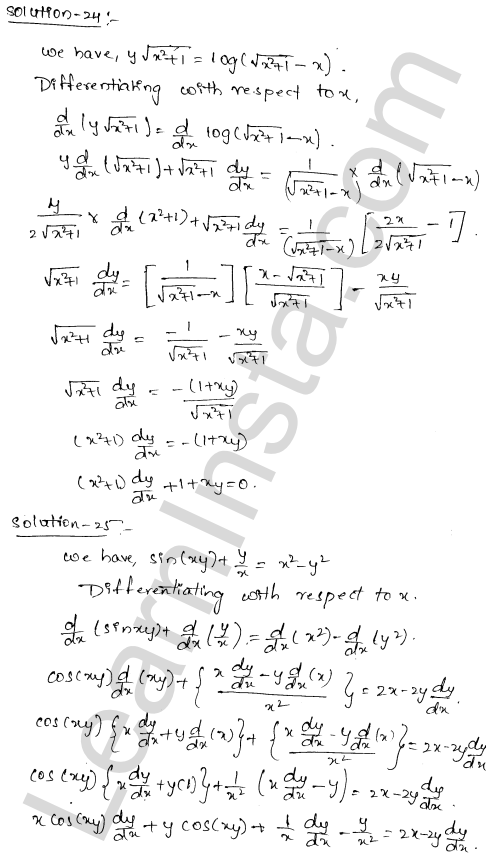 Solution-24:-
We have, y√(x²+1) = log(√(x²+1) - x).
Differentiating with respect to x,
d/dx (y√(x²+1)) = d/dx log(√(x²+1) - x).
y d/dx (√(x²+1)) + √(x²+1) dy/dx = 1/(√(x²+1) - x) × d/dx (√(x²+1) - x)
y/(2√(x²+1)) × d/dx (x²+1) + √(x²+1) dy/dx = 1/(√(x²+1) - x) [2x/(2√(x²+1)) - 1].
√(x²+1) dy/dx = [1/(√(x²+1) - x)] [(x - √(x²+1))/√(x²+1)] - xy/√(x²+1)
√(x²+1) dy/dx = -1/√(x²+1) - xy/√(x²+1)
√(x²+1) dy/dx = -(1+xy)/√(x²+1)
(x²+1) dy/dx = -(1+xy)
(x²+1) dy/dx + 1 + xy = 0.
Solution-25:-
We have, sin(xy) + y/x = x² - y²
Differentiating with respect to x.
d/dx (sinxy) + d/dx (y/x) = d/dx (x²) - d/dx (y²).
cos(xy) d/dx (xy) + {(x dy/dx - y d/dx (x))/x²} = 2x - 2y dy/dx.
cos(xy) {x dy/dx + y d/dx (x)} + {(x dy/dx - y d/dx (x))/x²} = 2x - 2y dy/dx
cos(xy) {x dy/dx + y(1)} + 1/x² (x dy/dx - y) = 2x - 2y dy/dx.
x cos(xy) dy/dx + y cos(xy) + 1/x dy/dx - y/x² = 2x - 2y dy/dx.
LearnInsta.com